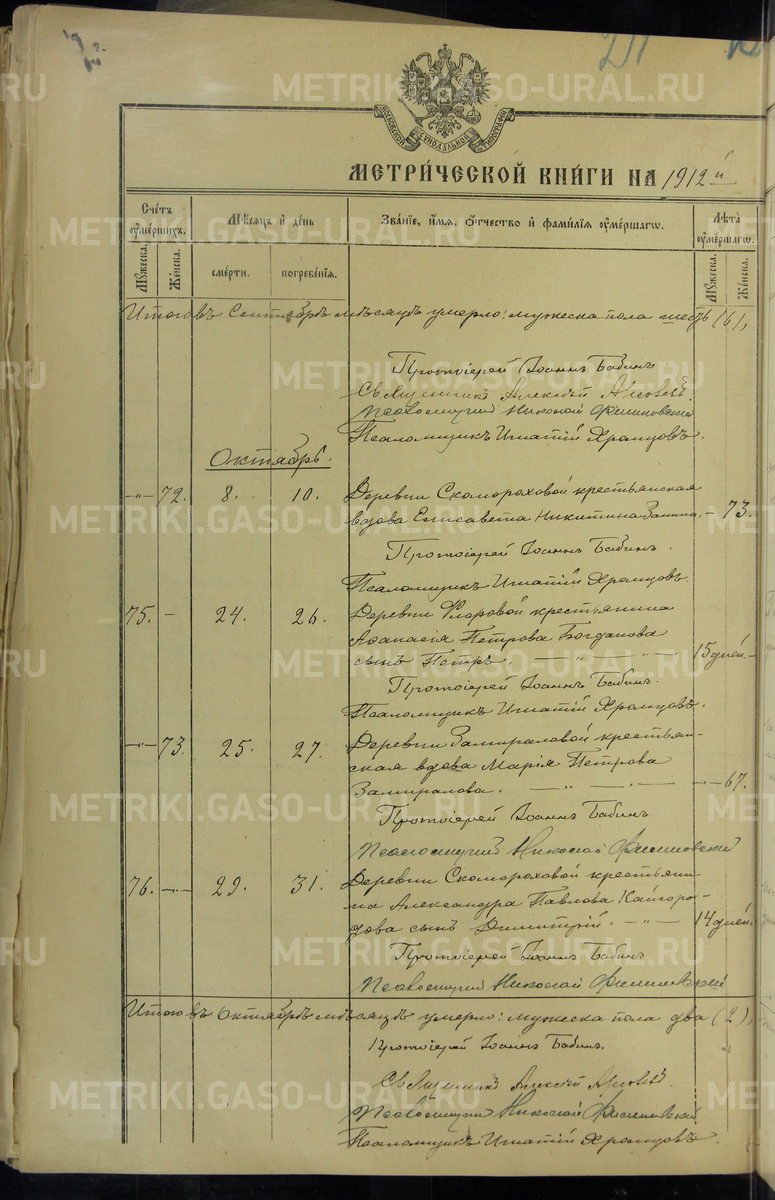 МОСКОВСКОЙ СѴНОДАЛЬНОЙ ТИПОГРАФІИ
МЕТРИ́ЧЕСКОЙ КНИ́ГИ НА 1912 й
Сче́тъ ᲂумершихъ.
Мѣсяцъ и҆ де́нь
Зва́нїе, и҆́мя, ѻ҆́тчество и҆ фами́лїя ᲂумершагѡ.
Лѣта̀ ᲂумершагѡ.
Мꙋ́жеска.
Же́нска.
сме́рти.
погребе́нїя.
Мꙋ́жеска.
Же́нска.
Итого въ Сентябрѣ мѣсяцѣ умерло: мужеска пола шесть (6),
Протоіерей Іоаннъ Бабинъ.
Священникъ Алексѣй
Псаломщикъ Николай
Псаломщикъ Игнатій Храмцовъ.
Октябрь.
—"— 72. 8. 10. Деревни Скомороховой крестьянская
вдова Елисавета Никитина — 73.
Протоіерей Іоаннъ Бабинъ.
Псаломщикъ Игнатій Храмцовъ.
75. — 24. 26. Деревни Фларовой крестьянина
Аѳанасія Петрова Богданова
сынъ Петръ. — " — " — 15 дней. —
Протоіерей Іоаннъ Бабинъ.
Псаломщикъ Игнатій Храмцовъ.
—"— 73. 25. 27. Деревни Замираловой крестьян-
ская вдова Марія Петрова
Замиралова. — " — — " — 67.
Протоіерей Іоаннъ Бабинъ.
Псаломщикъ Николай
76. —"— 29. 31. Деревни Скомороховой крестьяни-
на Александра Павлова Кайгоро-
дова сынъ Димитрій. — " — 14 дней.
Протоіерей Іоаннъ Бабинъ.
Псаломщикъ Николай
Итого въ Октябрѣ мѣсяцѣ умерло: мужеска пола два (2),
Протоіерей Іоаннъ Бабинъ.
Священникъ Алексѣй
Псаломщикъ Николай
Псаломщикъ Игнатій Храмцовъ.
METRIKI.GASO-URAL.RU